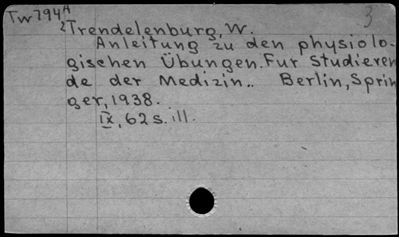 Tw794A
3
2Trendelenburg, W.
Anleitung zu den physiolo-
gischen Übungen. Fur Studieren
de der Medizin.. Berlin, Sprin
ger, 1938.
IX, 62 s. ill.